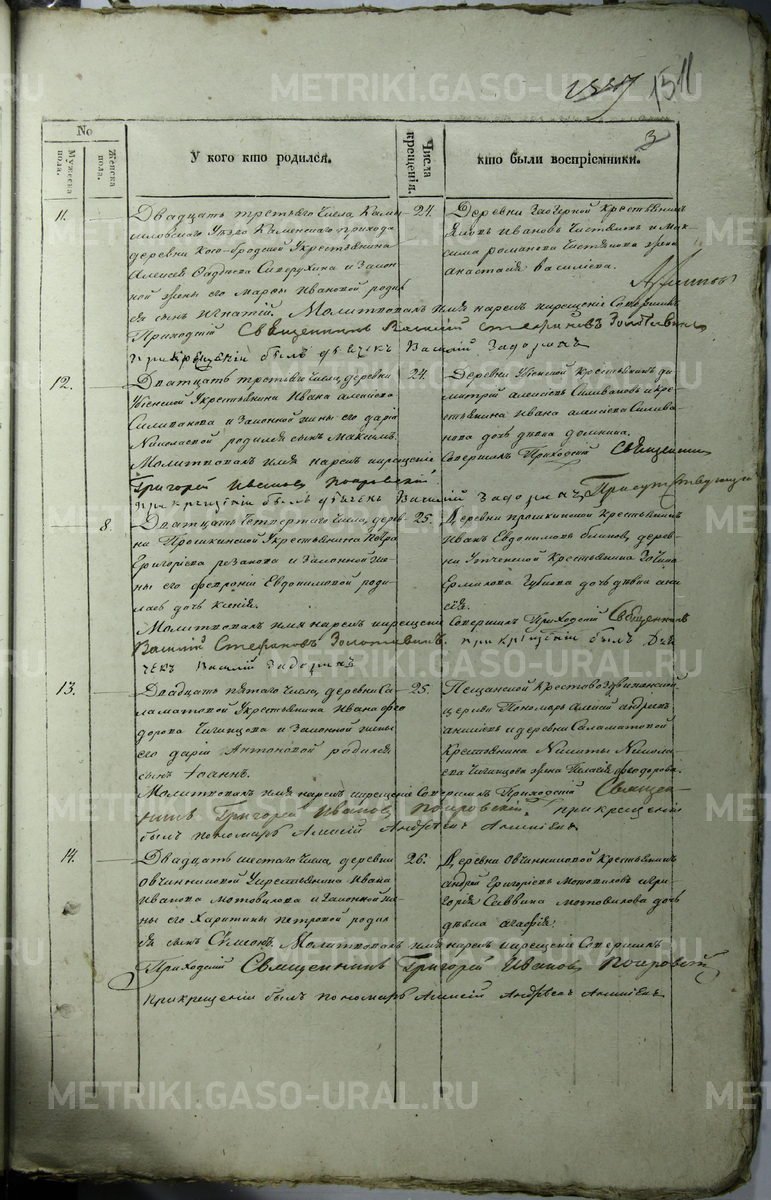 1511
3
No
Мужеска пола.
Женска пола.
У кого кто родился.
Числа крещенія.
кто были воспріемники.
11.
Двадцать третьяго числа Камы-
шловскаго Уезда Каменскаго прихода
деревни Косо-бродской Укрестьянина
Алексея и Закон-
ной жены его Марфы Ивановой роди-
ся сынъ Игнатій. Молитвовалъ имя нарекъ икрещеніе Совершилъ
Приходскій Священникъ Василий Стефановъ Золотавинъ
прикрещеніи былъ дьячекъ Василий Задоринъ
24.
Деревни крестьянинъ
Яковъ Ивановъ Чистяковъ и Мак-
сима романова Чистякова жена
анастасія василіева.
12.
Дватцать третьяго числа, деревни
Укрестьянина Ивана алексеева
Селиванова и Законной жены его даріи
Николаевой родился сынъ Максимъ.
Молитвовалъ имя нарекъ икрещеніе Совершилъ Приходскій Священникъ
Григорий Ивановъ Покровский
прикрещеніи былъ дьячекъ Василий Задоринъ
24.
Деревни крестьянинъ ди-
митрий алексеевъ Селивановъ и кре-
стьянина Ивана алексеева Селива-
нова дочь девка домника.
8.
Дватцать Четвертаго числа, дерев-
ни Прошкинской Укрестьянина Петра
Григориева резанова и Законной же-
ны его февроніи Евдокимовой роди-
лась дочь ксенія.
Молитвовалъ имя нарекъ икрещеніе Совершилъ Приходский Священникъ
Василий Стефановъ Золотавинъ. прикрещеніи былъ Дья-
чекъ Василий Задоринъ
25.
Деревни прошкинской крестьянинъ
Иванъ Евдокимовъ блиновъ, дерев-
ни крестьянина
Ермилова Губина дочь девка ана-
сія.
13.
Двадцать пятаго числа, деревни Са-
ламатовой Укрестьянина Ивана фео-
дорова Чигинцова и Законной жены
его даріи Антоновой родился
сынъ Іоаннъ.
Молитвовалъ имя нарекъ икрещеніе Совершилъ Приходский Священ-
никъ Григорий Ивановъ Покровский. прикрещеніи
былъ пономарь Алексій Андреевъ
25.
Песчанской Крестовоздвиженской
церкви Пономарь алексій андреевъ
и деревни Саламатовой
Крестьянина Никиты Никола-
ева Чигинцова жена Пелагія феодорова.
14.
Двадцать шестаго числа, деревни
овчинниковой Укрестьянина Ивана
Иванова Мотовилова и Законной же-
ны его Харитины петровой родил-
ся сынъ Симеонъ. Молитвовалъ имя нарекъ икрещеніе Совершилъ
Приходский Священникъ Григорий Ивановъ Покровский,
прикрещеніи былъ пономарь Алексій Андреевъ
26.
Деревни овчинниковой крестьянинъ
андрей Григориевъ Мотовиловъ и Гри-
горія Саввина мотовилова дочь
девка агафія.
METRIKI.GASO-URAL.RU